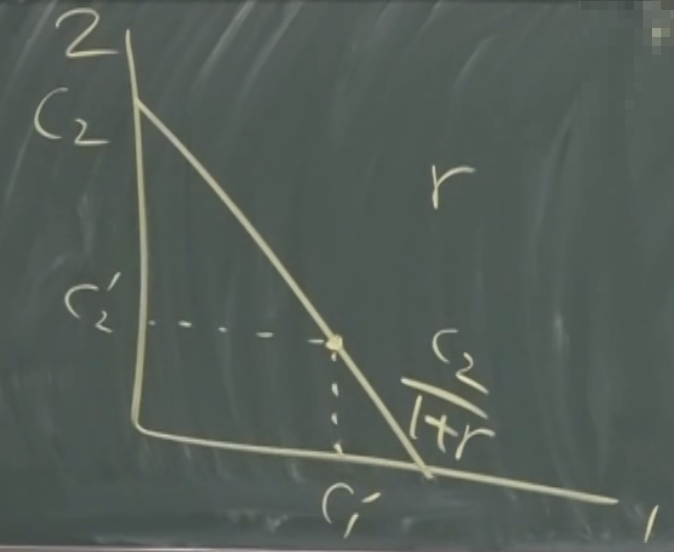 2
C₂
r
C₂'
C₂
1+r
C₁'
1